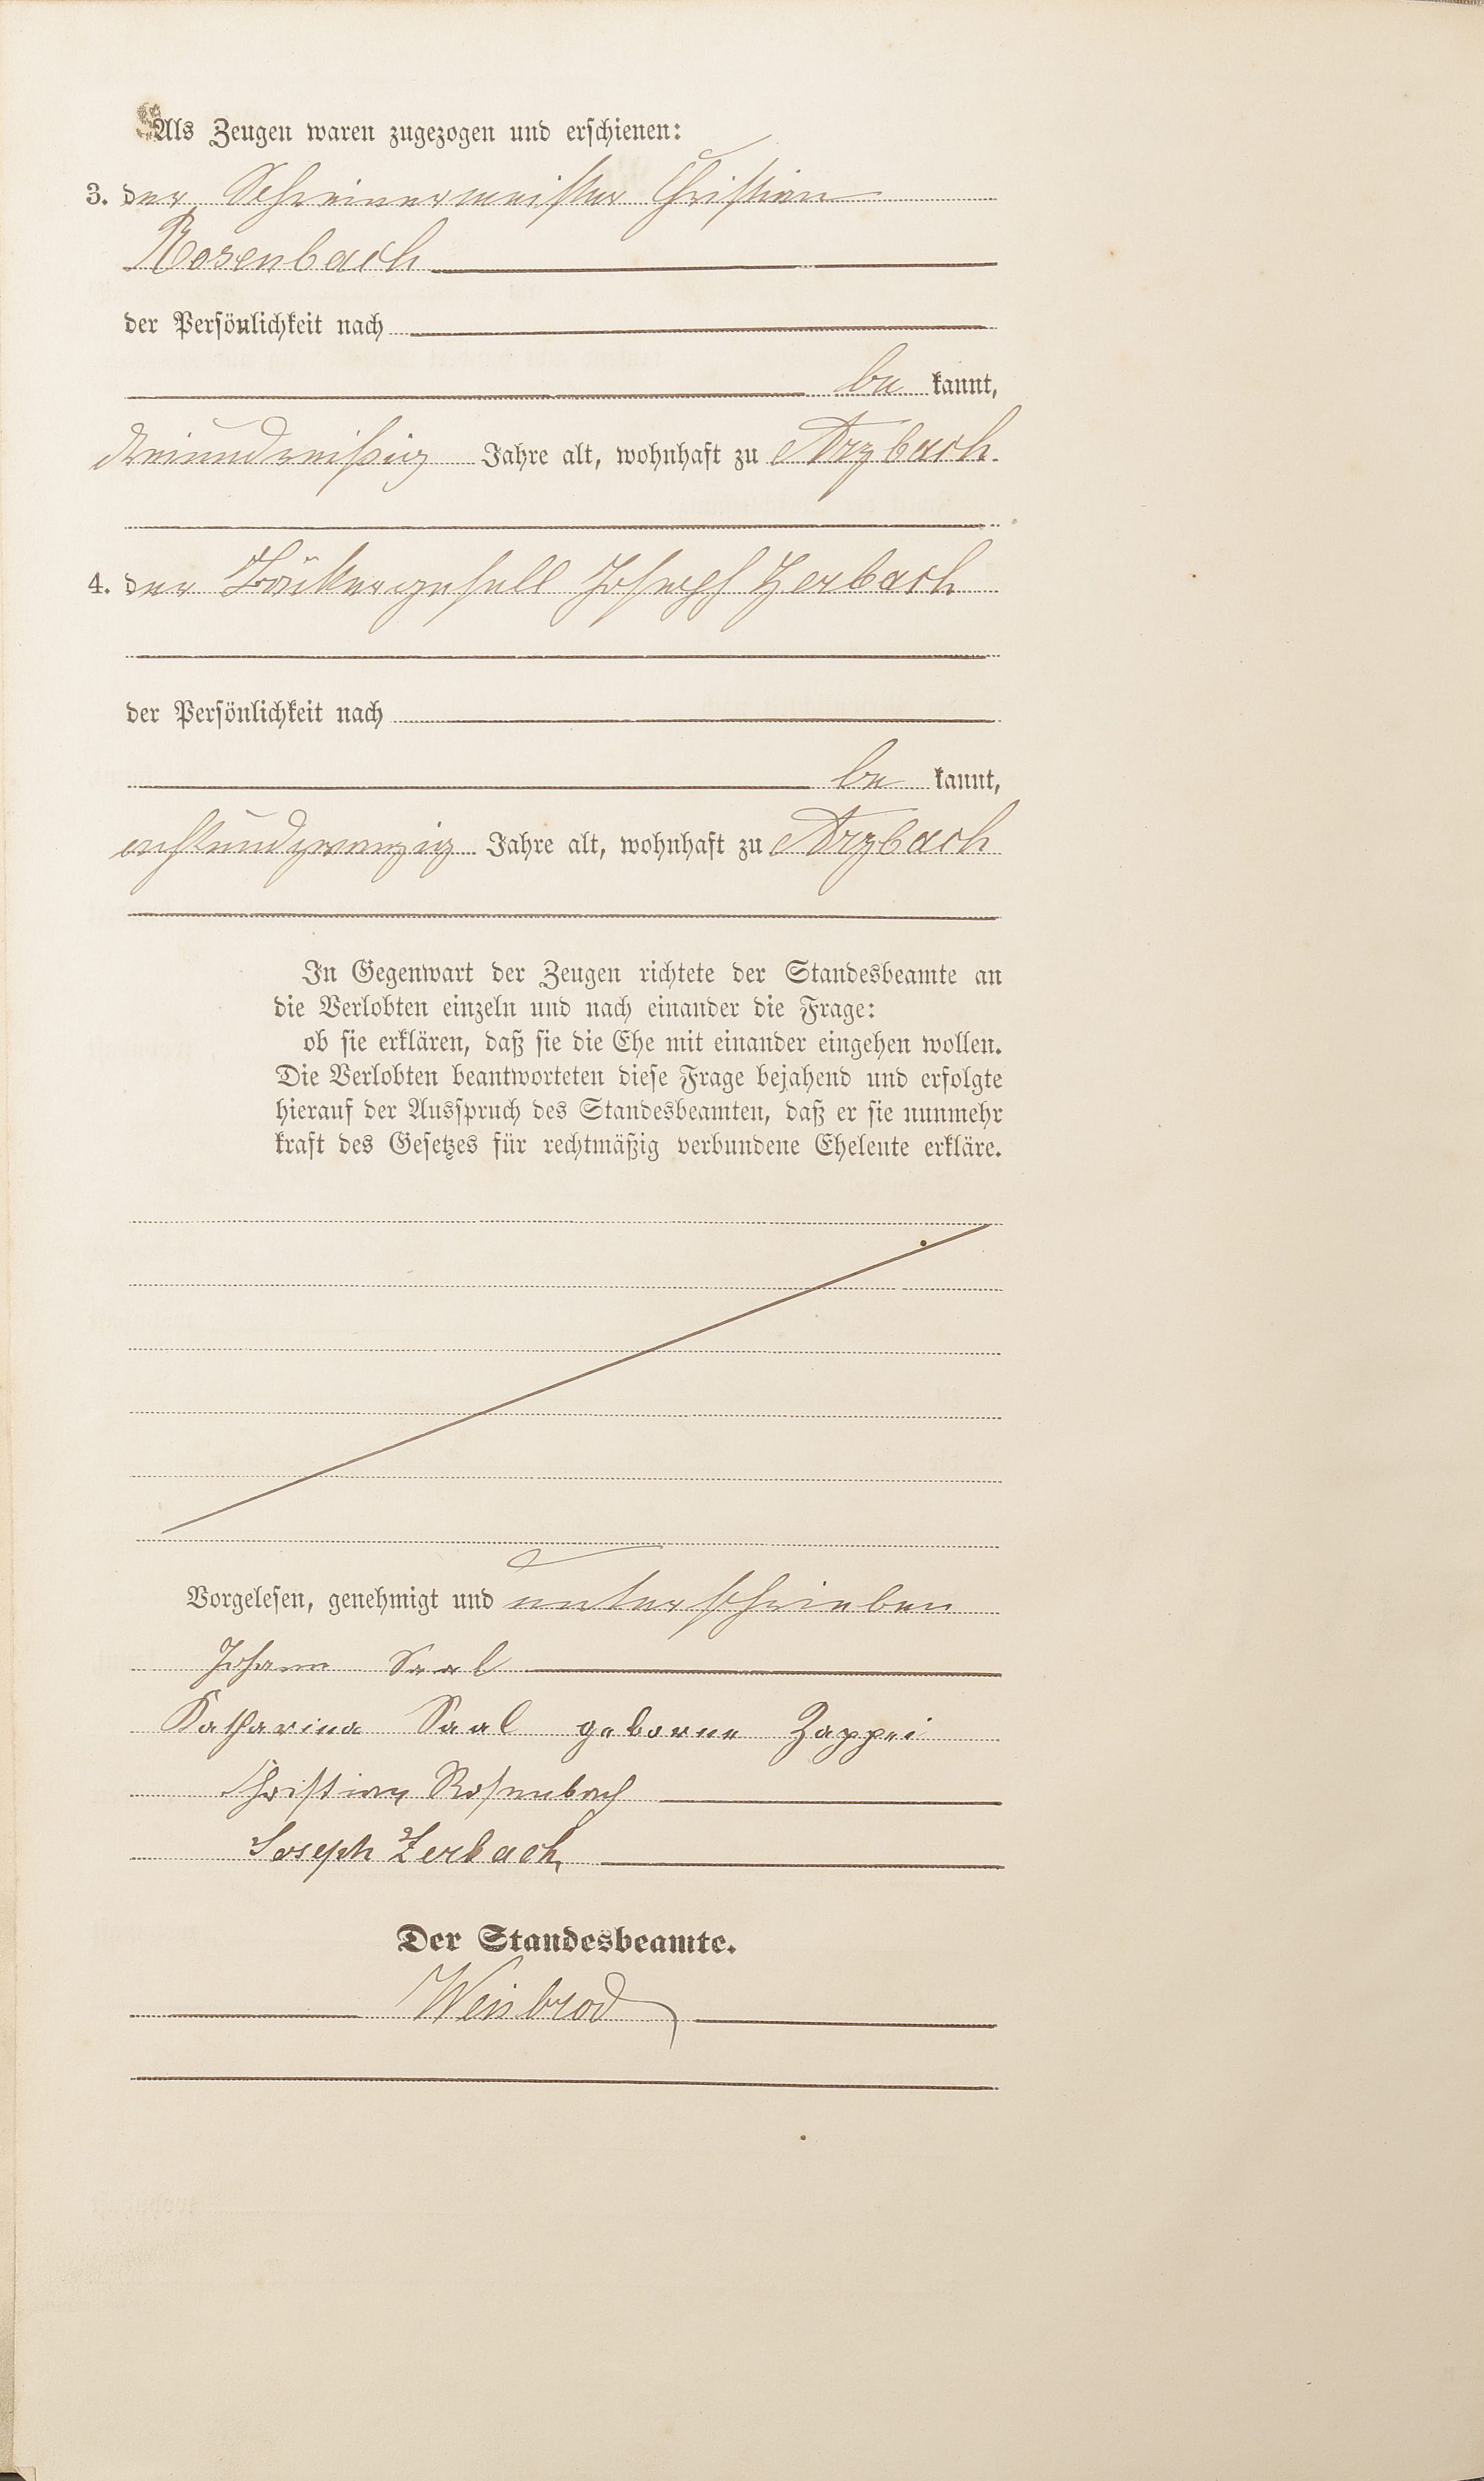 Als Zeugen waren zugezogen und erschienen:
3. der Schreinermeister Christian
Rosenbach
der Persönlichkeit nach
be kannt,
dreiunddreißig Jahre alt, wohnhaft zu Arzbach
4. der Bäckergesell Joseph Zerbach
der Persönlichkeit nach
be kannt,
achtundzwanzig Jahre alt, wohnhaft zu Arzbach
In Gegenwart der Zeugen richtete der Standesbeamte an
die Verlobten einzeln und nach einander die Frage:
ob sie erklären, daß sie die Ehe mit einander eingehen wollen.
Die Verlobten beantworteten diese Frage bejahend und erfolgte
hierauf der Ausspruch des Standesbeamten, daß er sie nunmehr
kraft des Gesetzes für rechtmäßig verbundene Eheleute erkläre.
Vorgelesen, genehmigt und unterschrieben
Johann Saal
Katharina Saal geborne Zappei
Christian Rosenbach
Joseph Zerbach
Der Standesbeamte.
Weisbrod